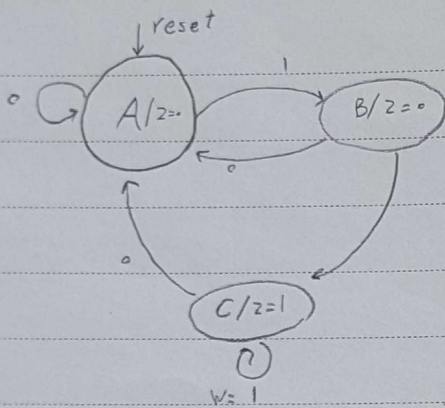 reset
0
1
A/z=0
B/z=0
0
0
C/z=1
W=1